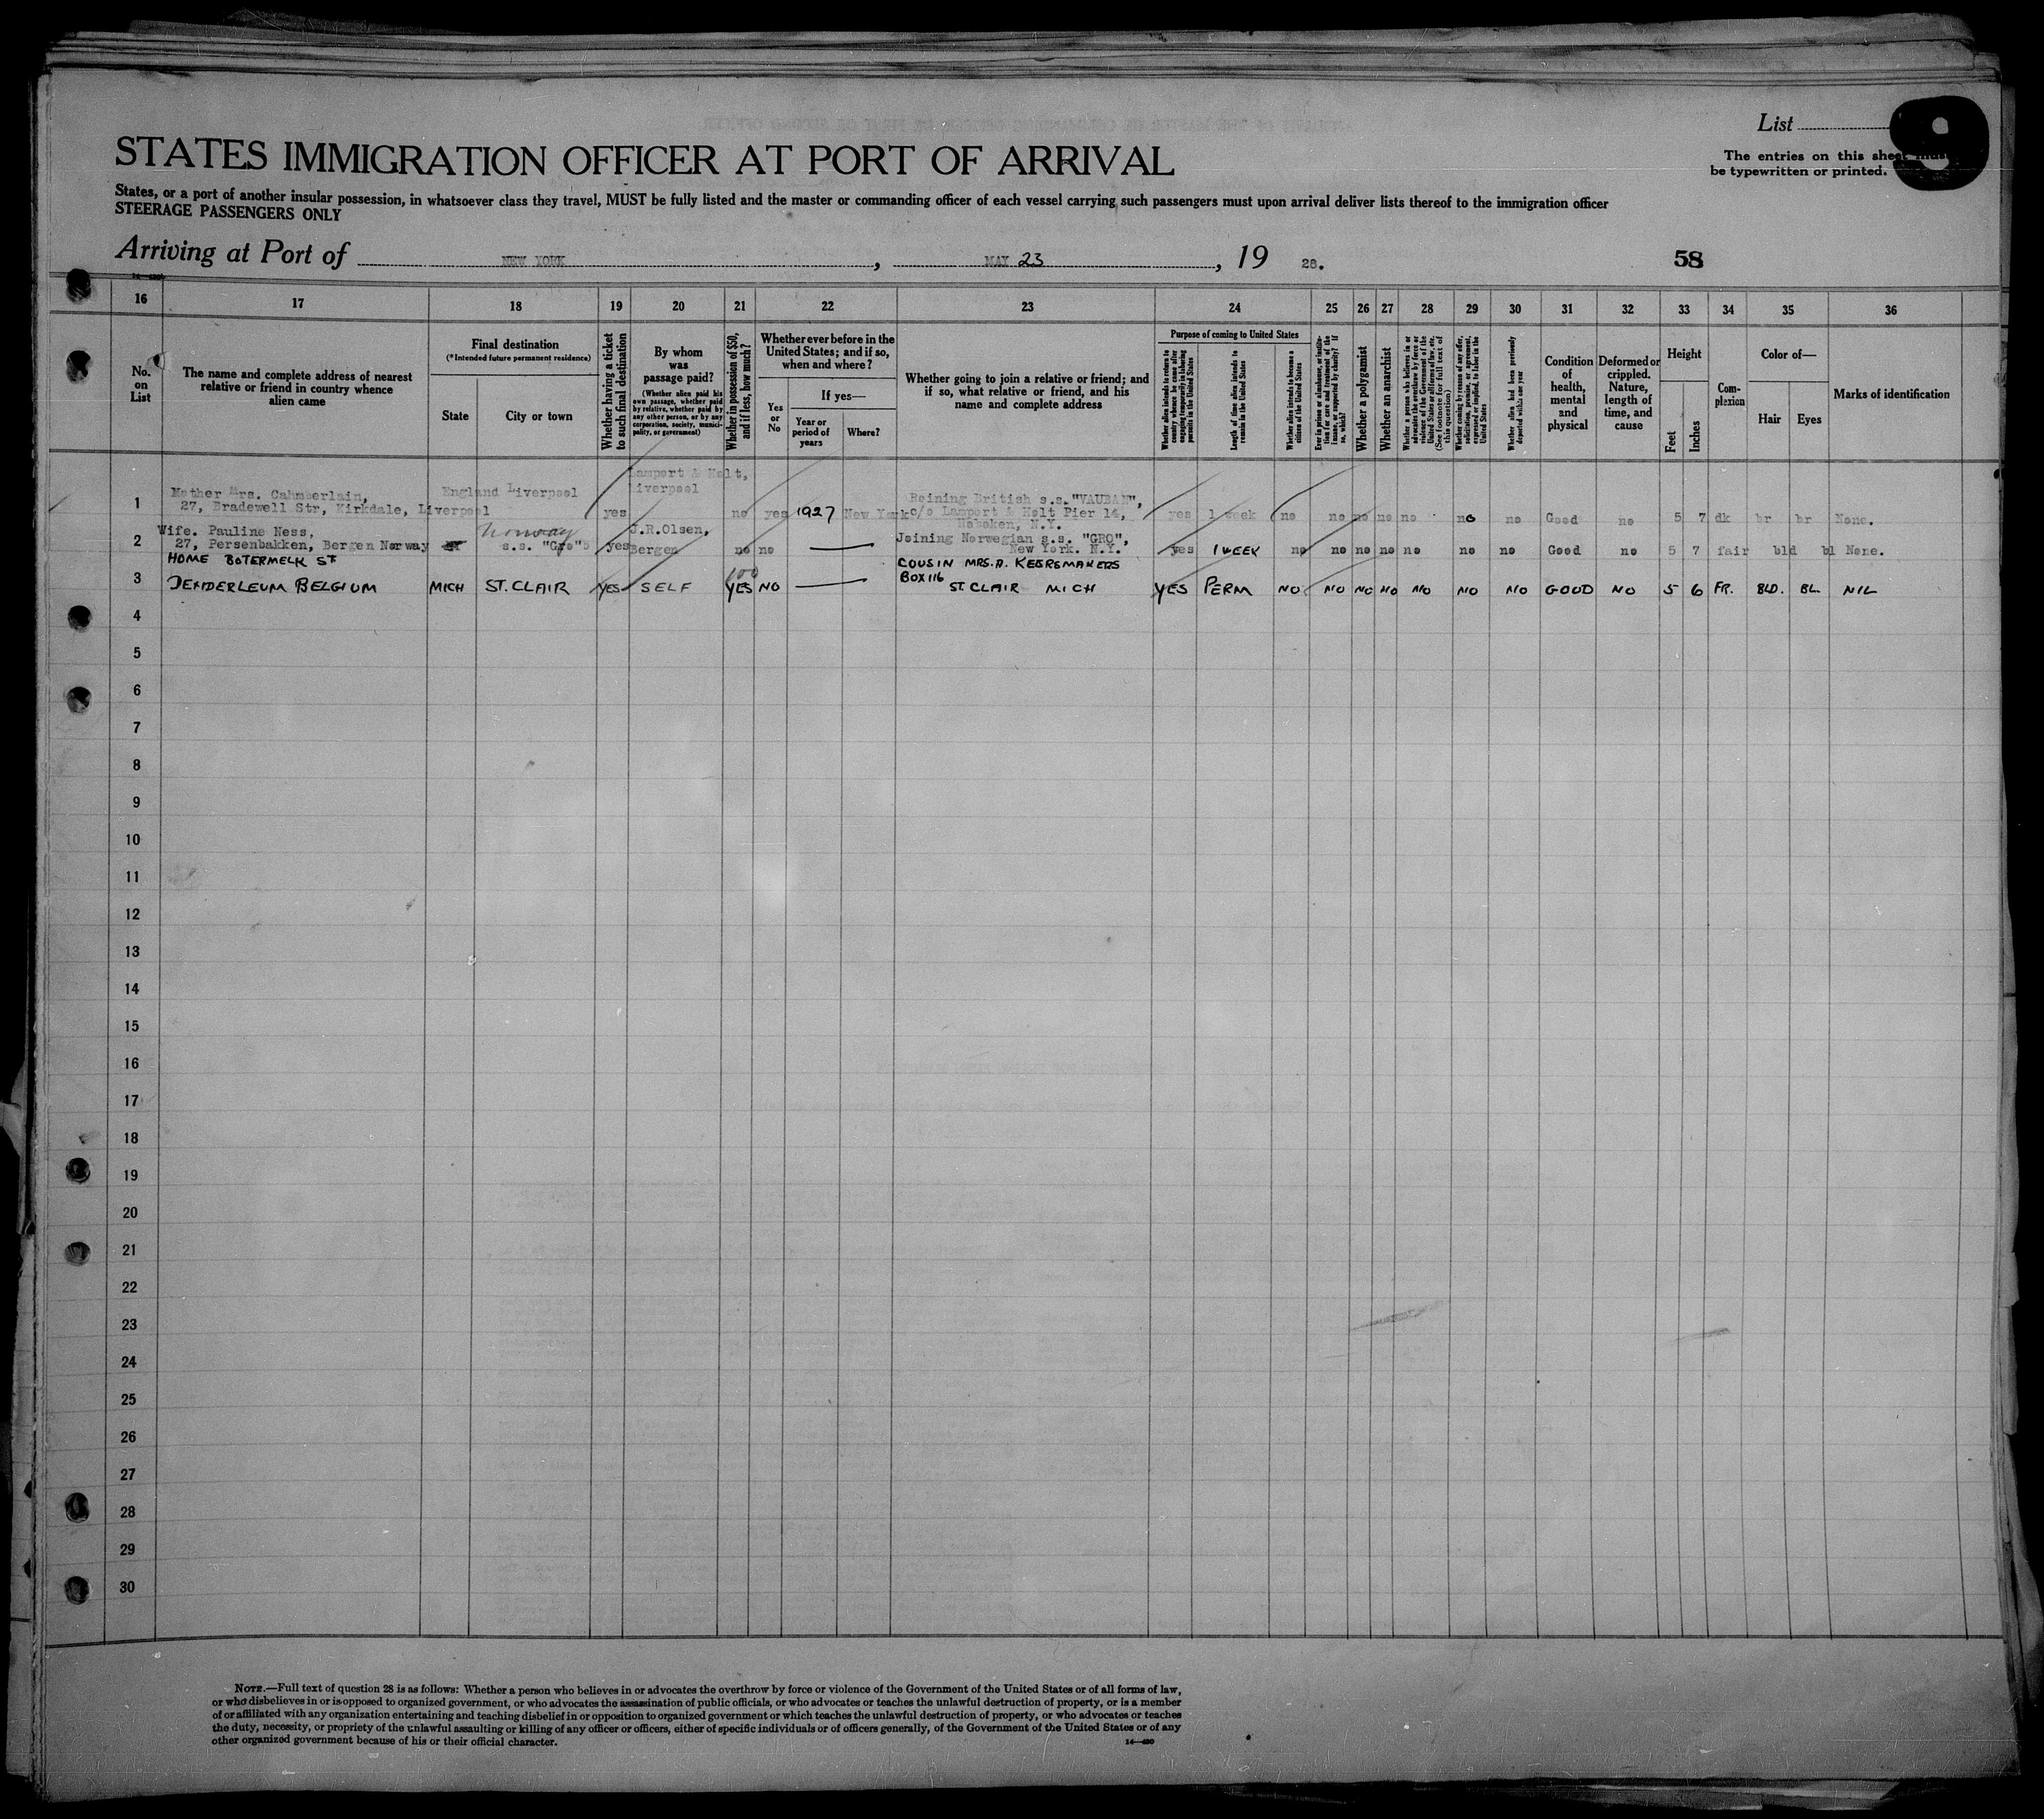 List
9
The entries on this sheet must
be typewritten or printed.
STATES IMMIGRATION OFFICER AT PORT OF ARRIVAL
States, or a port of another insular possession, in whatsoever class they travel, MUST be fully listed and the master or commanding officer of each vessel carrying such passengers must upon arrival deliver lists thereof to the immigration officer
STEERAGE PASSENGERS ONLY
Arriving at Port of NEW YORK, MAY 23, 19 28.
58
16 17 18 19 20 21 22 23 24 25 26 27 28 29 30 31 32 33 34 35 36
No. on List
The name and complete address of nearest
relative or friend in country whence
alien came
Final destination
(*Intended future permanent residence)
State
City or town
Whether having a ticket
to such final destination
By whom
was
passage paid?
(Whether alien paid his
own passage, whether paid
by relative, whether paid by
any other person, or by any
corporation, society, munici-
pality, or government)
Whether in possession of $50,
and if less, how much?
Whether ever before in the
United States; and if so,
when and where?
Yes
or
No
If yes—
Year or
period of
years
Where?
Whether going to join a relative or friend; and
if so, what relative or friend, and his
name and complete address
Purpose of coming to United States
Whether alien intends to return to
country whence he came after
engaging temporarily in laboring
pursuits in the United States
Length of time alien intends to
remain in the United States
Whether alien intends to become a
citizen of the United States
Ever in prison or almshouse, or institu-
tion for care and treatment of the
insane, or supported by charity? If
so, which?
Whether a polygamist
Whether an anarchist
Whether a person who believes in or
advocates the overthrow by force or
violence of the Government of the
United States or all forms of law, etc.
(See footnote for full text of
this question)
Whether coming by reason of any offer,
solicitation, promise, or agreement,
expressed or implied, to labor in the
United States
Whether alien had been previously
deported within one year
Condition
of
health,
mental
and
physical
Deformed or
crippled.
Nature,
length of
time, and
cause
Height
Feet
Inches
Com-
plexion
Color of—
Hair
Eyes
Marks of identification
Lampert & Holt,
Mother Mrs. Cahmberlain, England Liverpool Liverpool Reining British s.s. "VAUBAN",
1 27, Bradewell Str, Kirkdale, Liverpool yes no yes 1927 New York c/o Lampert & Holt Pier 14, yes 1 week no no no no no no no Good no 5 7 dk br br None.
Hoboken, N.Y.
Wife. Pauline Ness, Norway J.R.Olsen, Joining Norwegian s.s. "GRO",
2 27, Persenbakken, Bergen Norway s.s. "Gro" yes Bergen no no New York. N.Y. yes 1 WEEK no no no no no no no Good no 5 7 fair bld bl None.
HOME BOTERMELK ST 100 COUSIN MRS. A. KEERSMAKERS
BOX 116
3 DENDERLEUM BELGIUM MICH ST. CLAIR YES SELF YES NO ST. CLAIR MICH YES PERM NO NO NO NO NO NO NO GOOD NO 5 6 FR. BLD. BL. NIL
4
5
6
7
8
9
10
11
12
13
14
15
16
17
18
19
20
21
22
23
24
25
26
27
28
29
30
NOTE.—Full text of question 28 is as follows: Whether a person who believes in or advocates the overthrow by force or violence of the Government of the United States or of all forms of law,
or who disbelieves in or is opposed to organized government, or who advocates the assassination of public officials, or who advocates or teaches the unlawful destruction of property, or is a member
of or affiliated with any organization entertaining and teaching disbelief in or opposition to organized government or which teaches the unlawful destruction of property, or who advocates or teaches
the duty, necessity, or propriety of the unlawful assaulting or killing of any officer or officers, either of specific individuals or of officers generally, of the Government of the United States or of any
other organized government because of his or their official character.
14—430